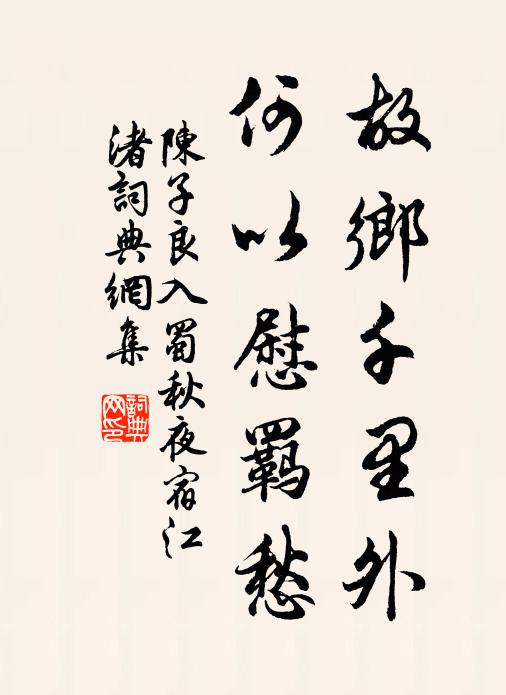 故鄉千里外
何以慰羈愁
陳子良入蜀秋夜宿江
渚詞典網集
詞典
网印